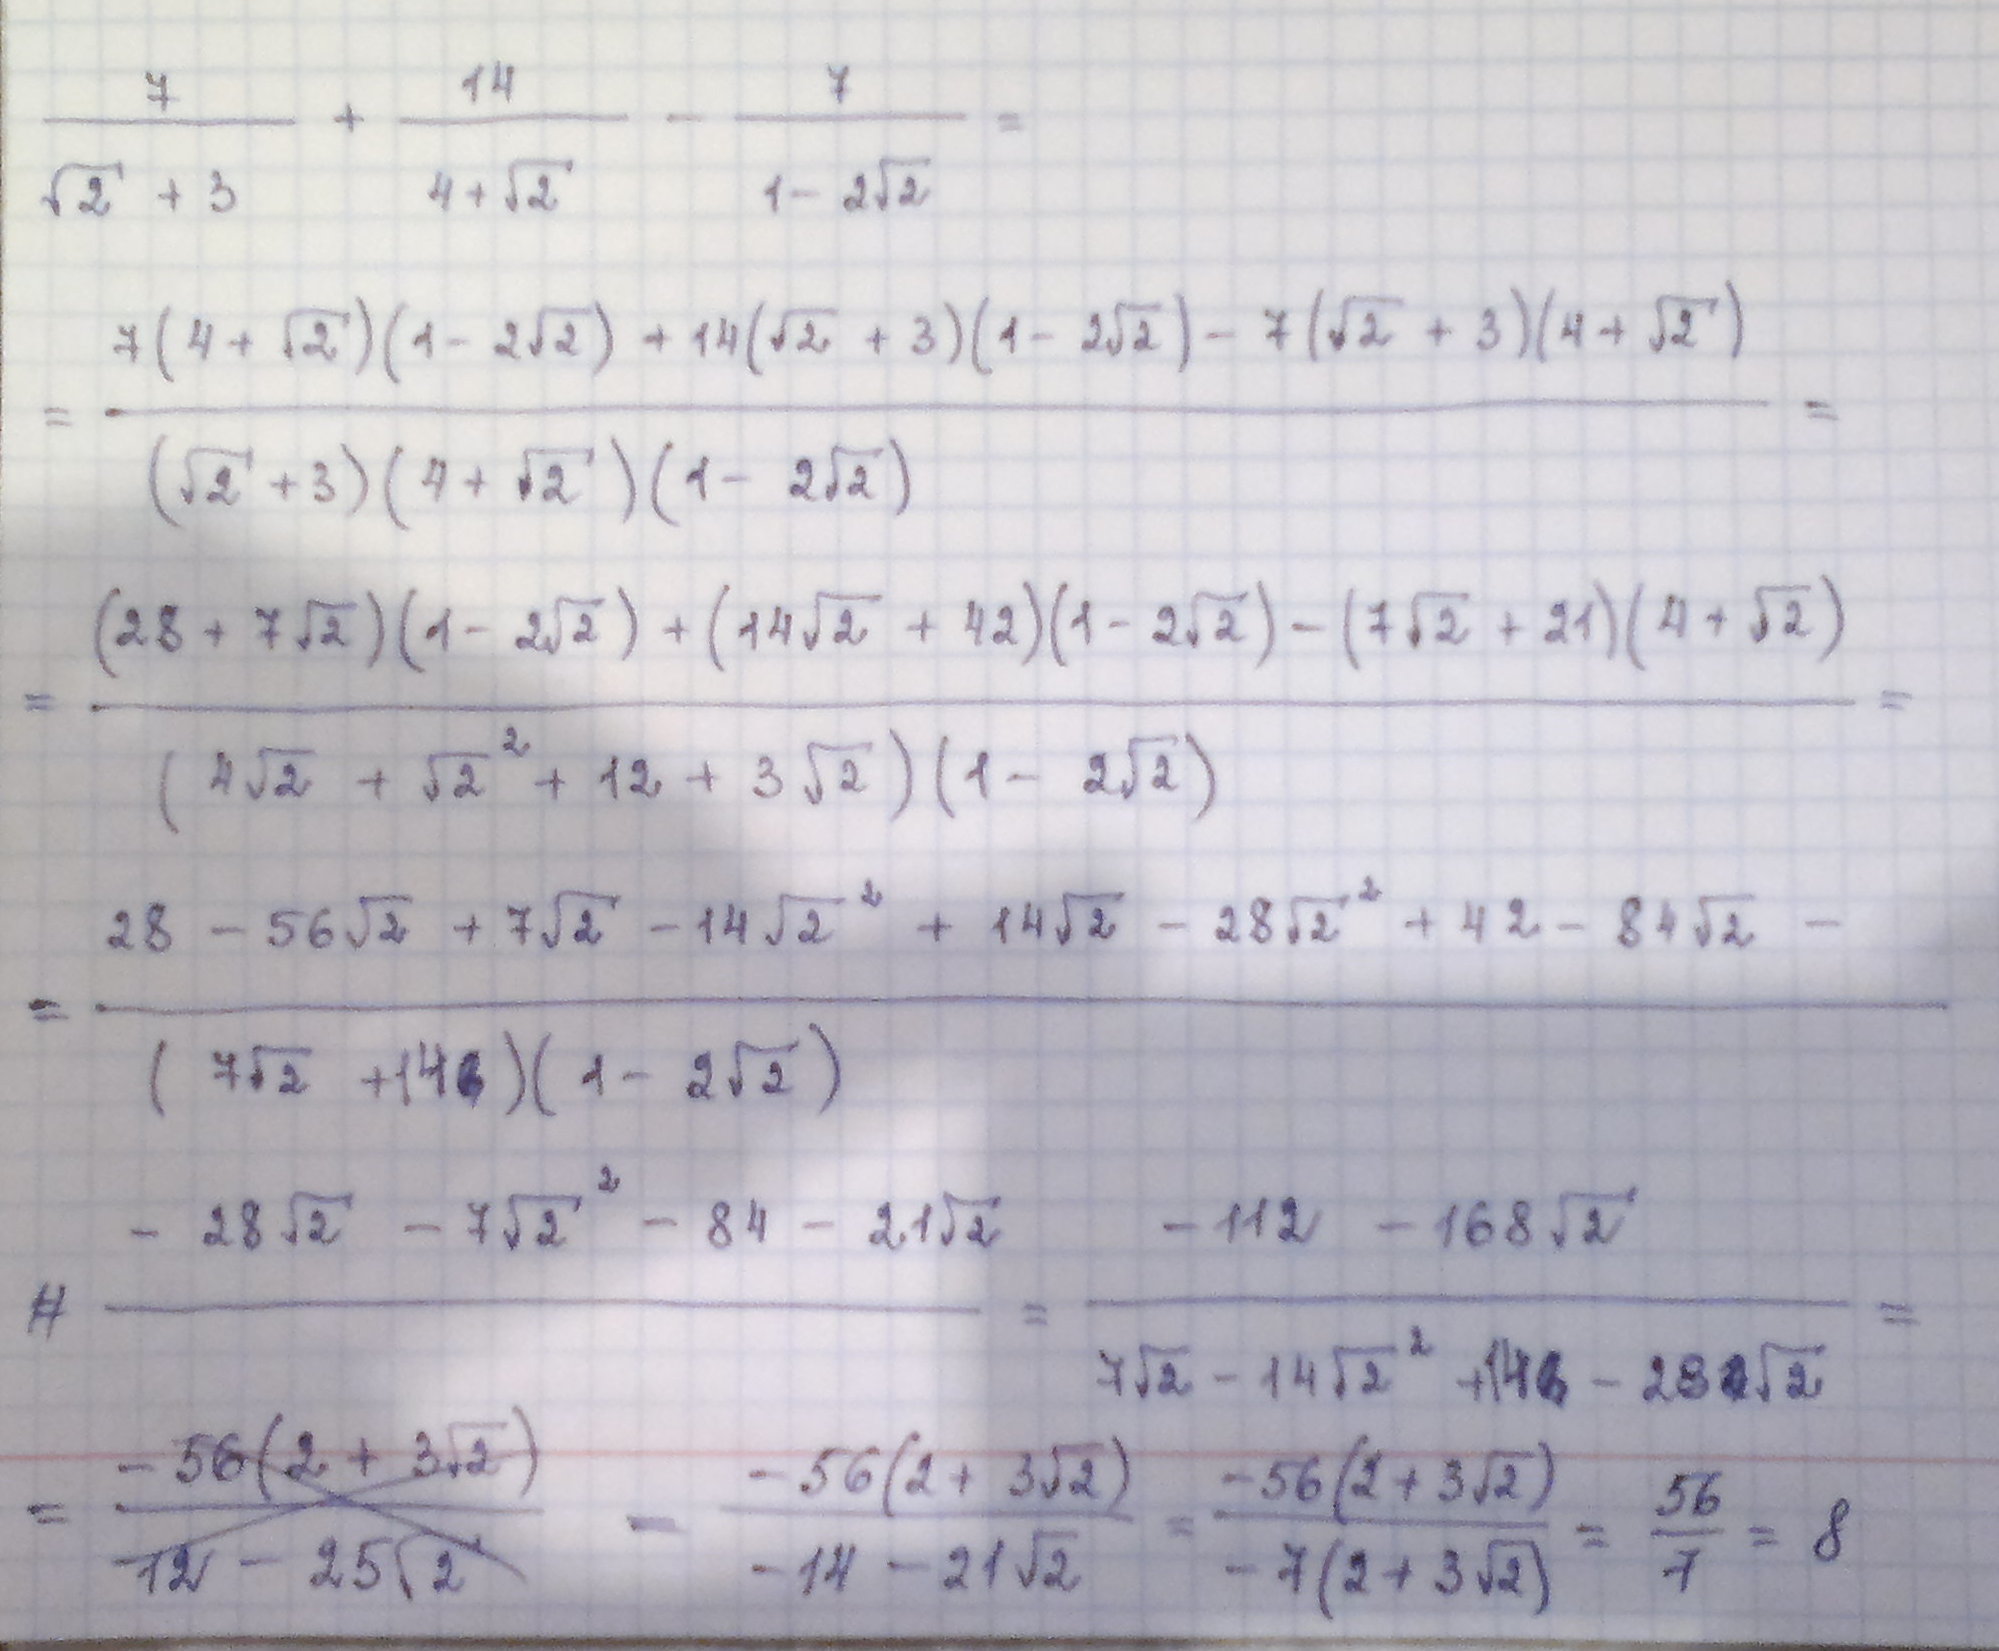 7/(√2 + 3) + 14/(4 + √2) - 7/(1 - 2√2) =
= (7(4 + √2)(1 - 2√2) + 14(√2 + 3)(1 - 2√2) - 7(√2 + 3)(4 + √2))/((√2 + 3)(4 + √2)(1 - 2√2)) =
= ((28 + 7√2)(1 - 2√2) + (14√2 + 42)(1 - 2√2) - (7√2 + 21)(4 + √2))/((4√2 + √2² + 12 + 3√2)(1 - 2√2)) =
= (28 - 56√2 + 7√2 - 14√2² + 14√2 - 28√2² + 42 - 84√2 -)/((7√2 + 14)(1 - 2√2))
(- 28√2 - 7√2² - 84 - 21√2)/ = (-112 - 168√2)/(7√2 - 14√2² + 14 - 28√2) =
= (-56(2 + 3√2))/(-12 - 25√2) = (-56(2 + 3√2))/(-14 - 21√2) = (-56(2 + 3√2))/(-7(2 + 3√2)) = 56/7 = 8